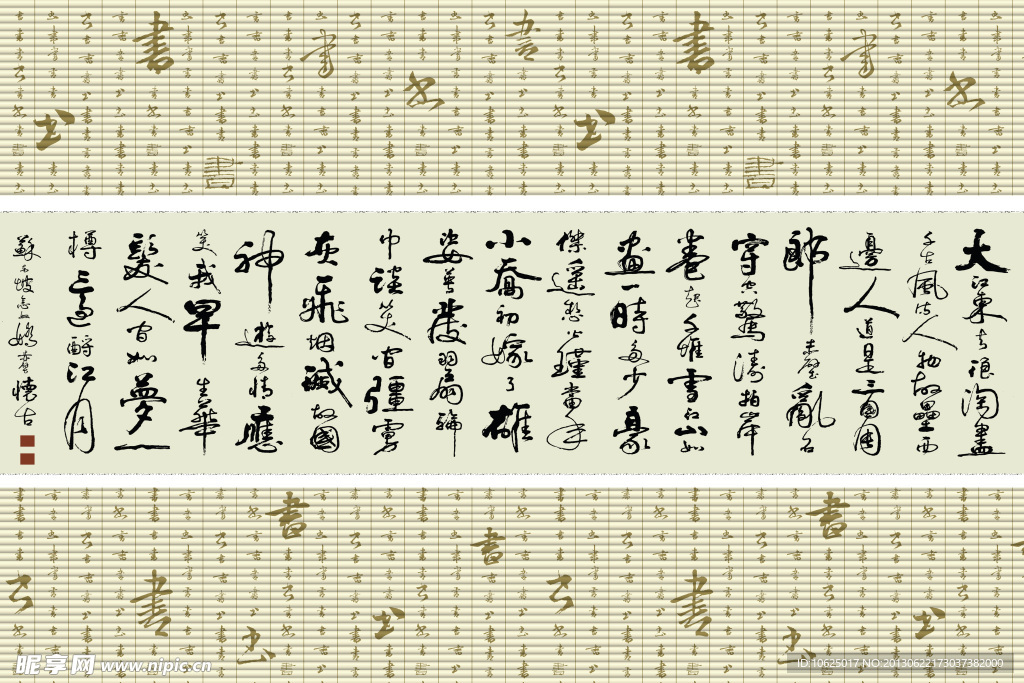 大江東去浪淘盡
千古風流人物故壘西
邊人道是三國周
郎赤壁亂石
穿空驚濤拍岸
卷起千堆雪江山如
畫一時多少豪
傑遥想公瑾當年
小喬初嫁了雄
姿英發羽扇綸
巾談笑間彊虜
灰飛烟滅故國
神遊多情應
笑我早生華
髮人间如夢一
樽還酹江月
蘇东坡念奴嬌赤壁懷古
昵享网 www.nipic.cn
ID:10625017 NO:20130622173037382000